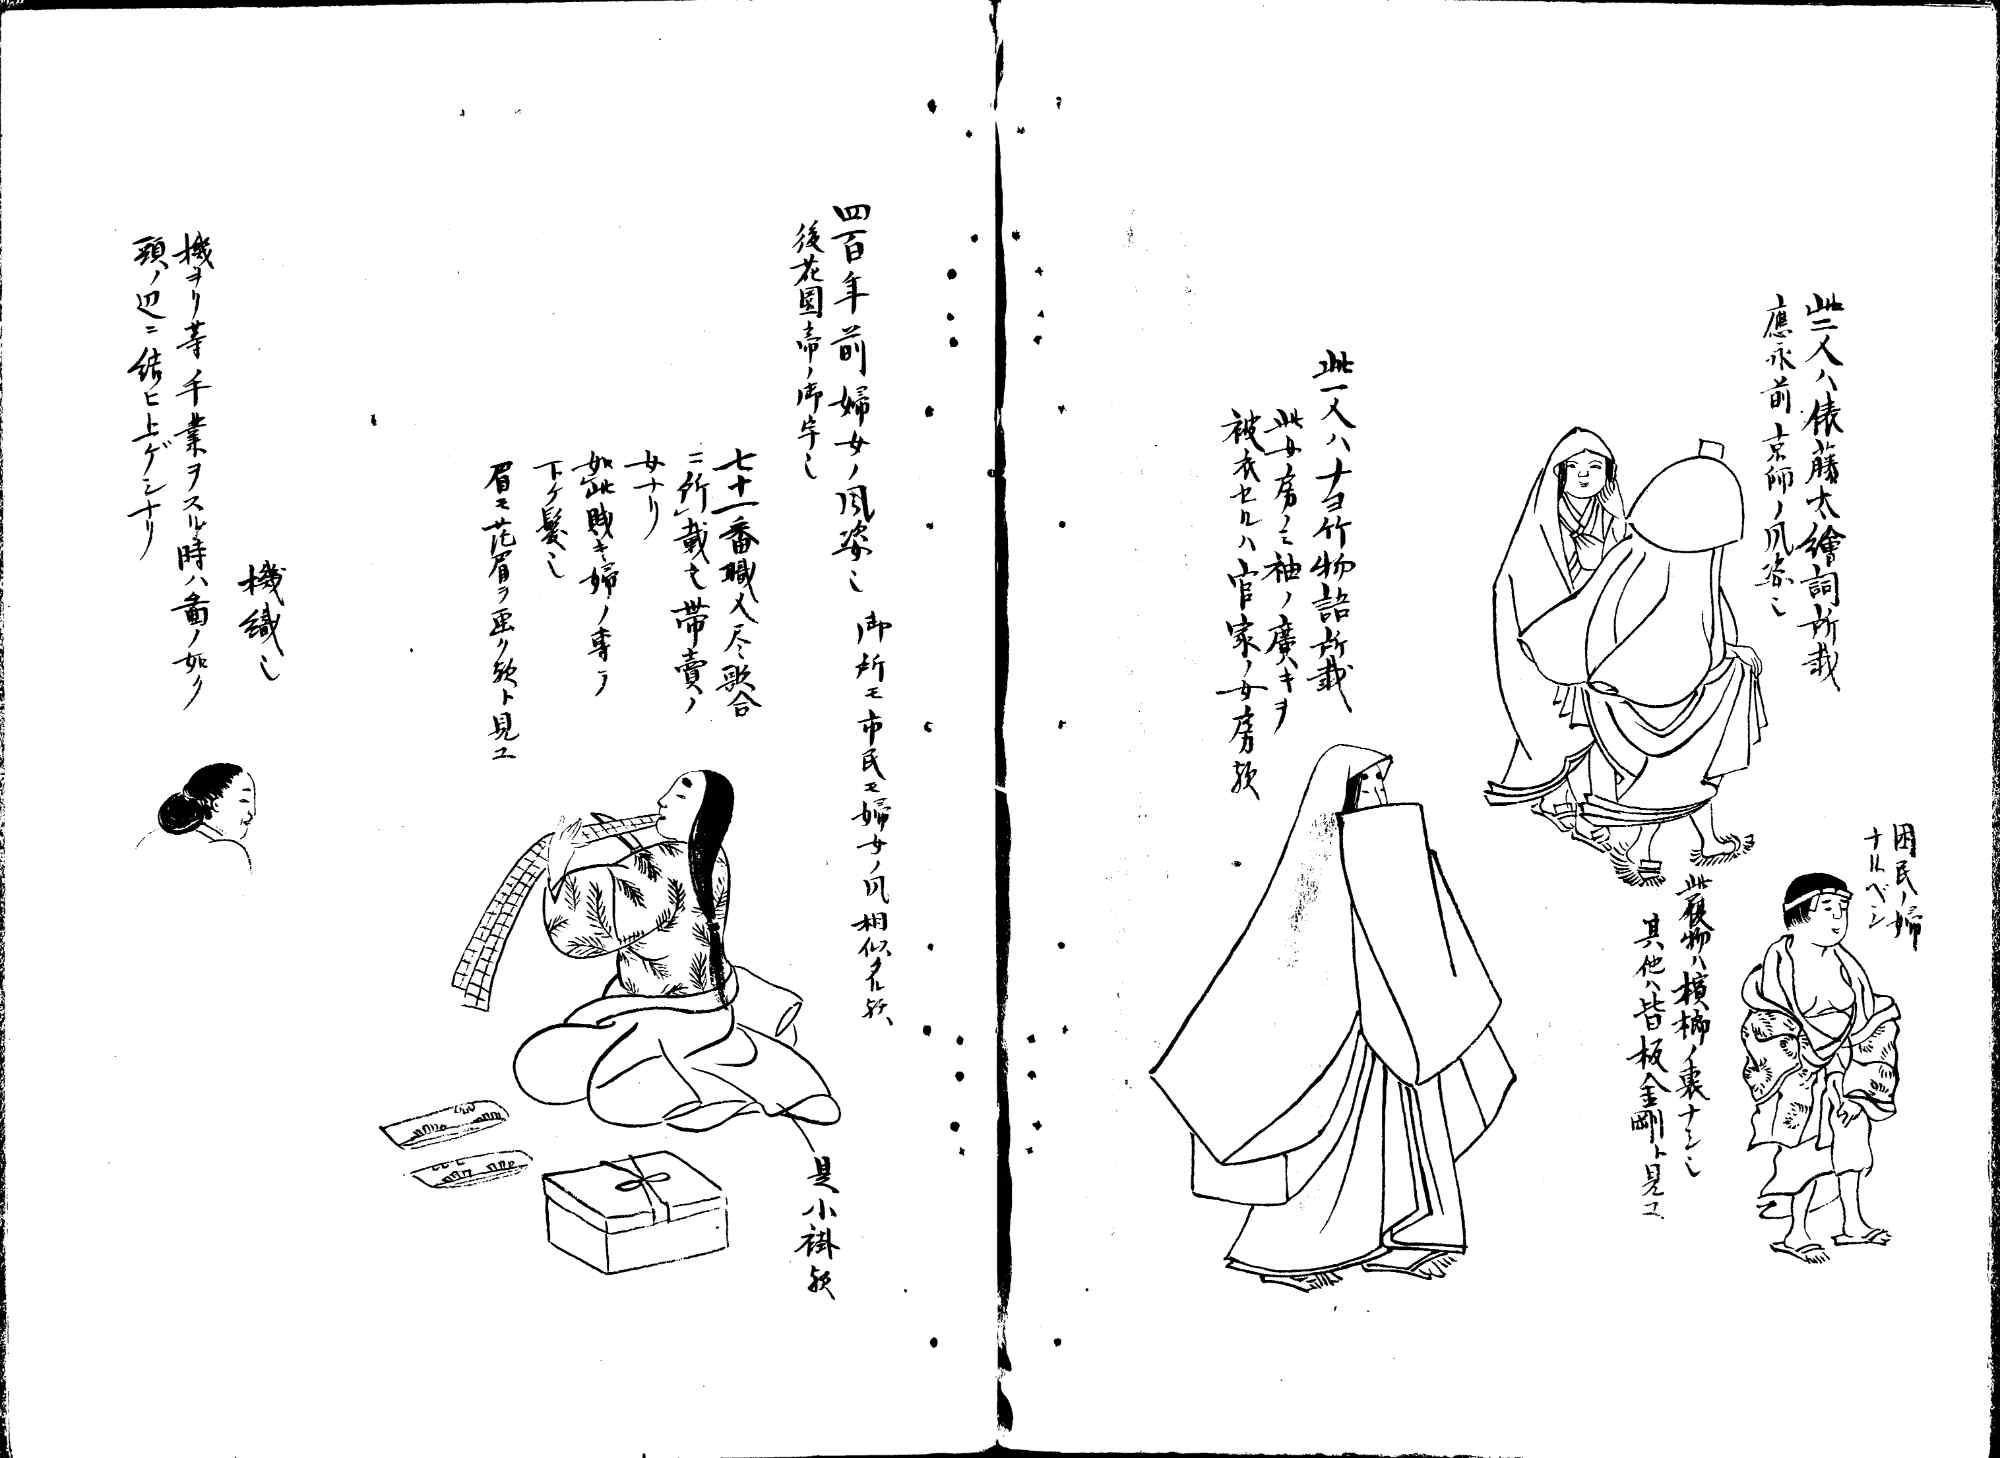 此二人ハ俵藤太繪詞所載
應永前京師ノ風姿也
困民ノ婦
ナルベシ
此履物ハ檳榔ノ裏ナシ也
其他ハ皆板金剛ト見ユ
此一人ハナヨ竹物語所載
此女房ノミ袖ノ廣キヲ
被衣セルハ官家ノ女房歟
四百年前婦女ノ風姿也
後花園帝ノ御宇也
御所モ市民モ婦女ノ風相似タル歟
七十一番職人尽歌合
ニ所載之帯賣ノ
女ナリ
如此賎キ婦ノ専ラ
下ケ髪也
眉モ茫眉ヲ画ク歟ト見ユ
是小褂歟
機織也
機ヲリ等ノ手業ヲスル時ハ畧図ノ如ク
頸ノ辺ニ結ヒ上ゲシナリ